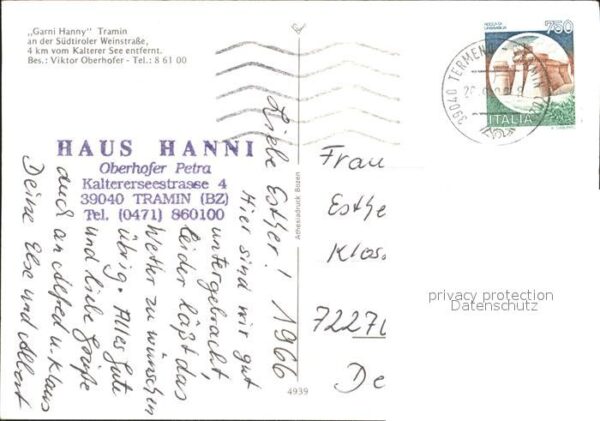 „Garni Hanny“ Tramin
an der Südtiroler Weinstraße,
4 km vom Kalterer See entfernt.
Bes.: Viktor Oberhofer - Tel.: 8 61 00
HAUS HANNI
Oberhofer Petra
Kaltererseestrasse 4
39040 TRAMIN (BZ)
Tel. (0471) 860100
Liebe Esther! 1966
Hier sind wir gut
untergebracht,
leider läßt das
Wetter zu wünschen
übrig. Alles Gute
und liebe Grüße
auch an Alfred u. Klaus
Deine Else und Albert
Athesiadruck Bozen
4939
39040 TERMENO
750
ITALIA
Frau
Esthe
Klos
7227
De
privacy protection
Datenschutz